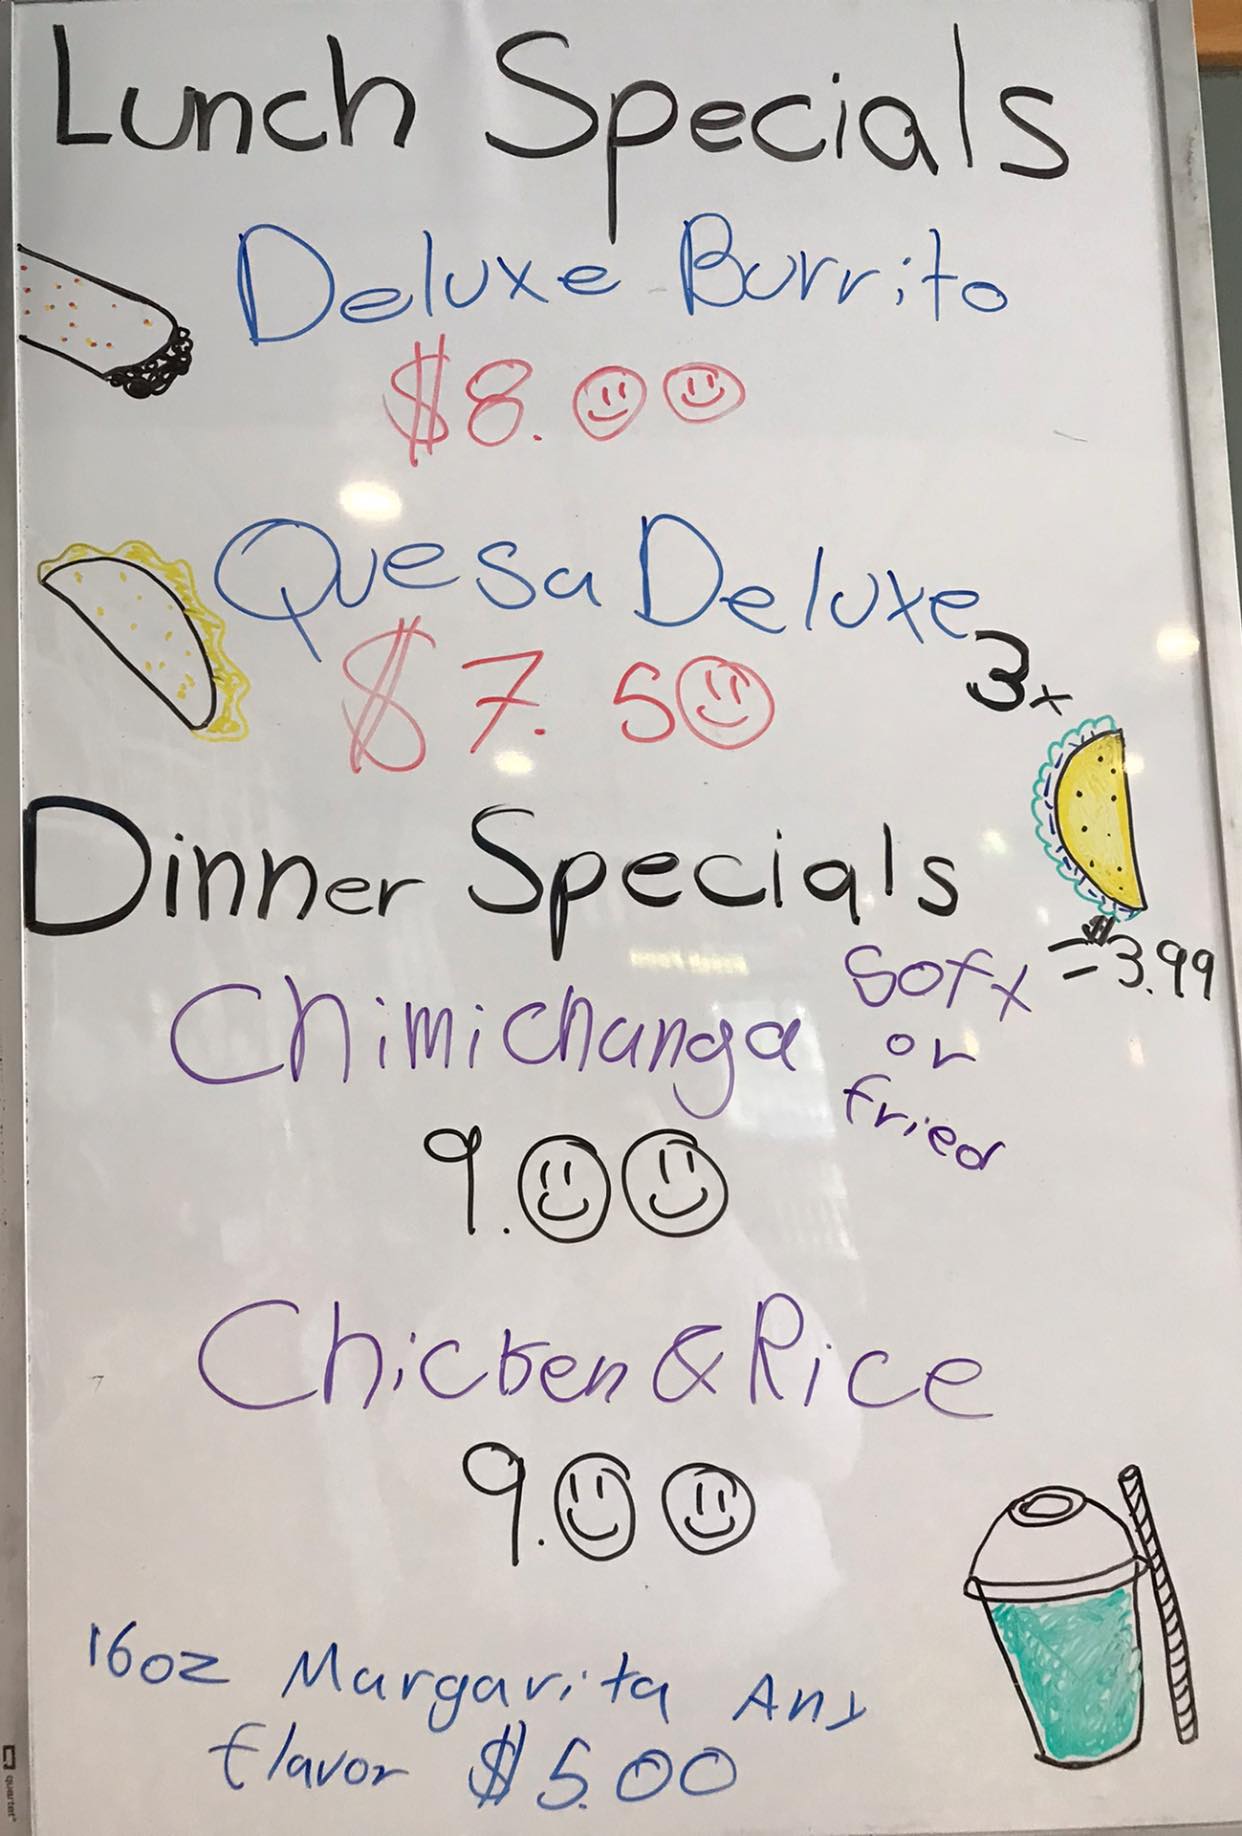 Lunch Specials
Deluxe Burrito
$8.00
Quesa Deluxe
$7.50
3x
= $3.99
Dinner Specials
Chimichanga
Soft
or
fried
9.00
Chicken & Rice
9.00
16oz Margarita Any
flavor $5.00
quartet